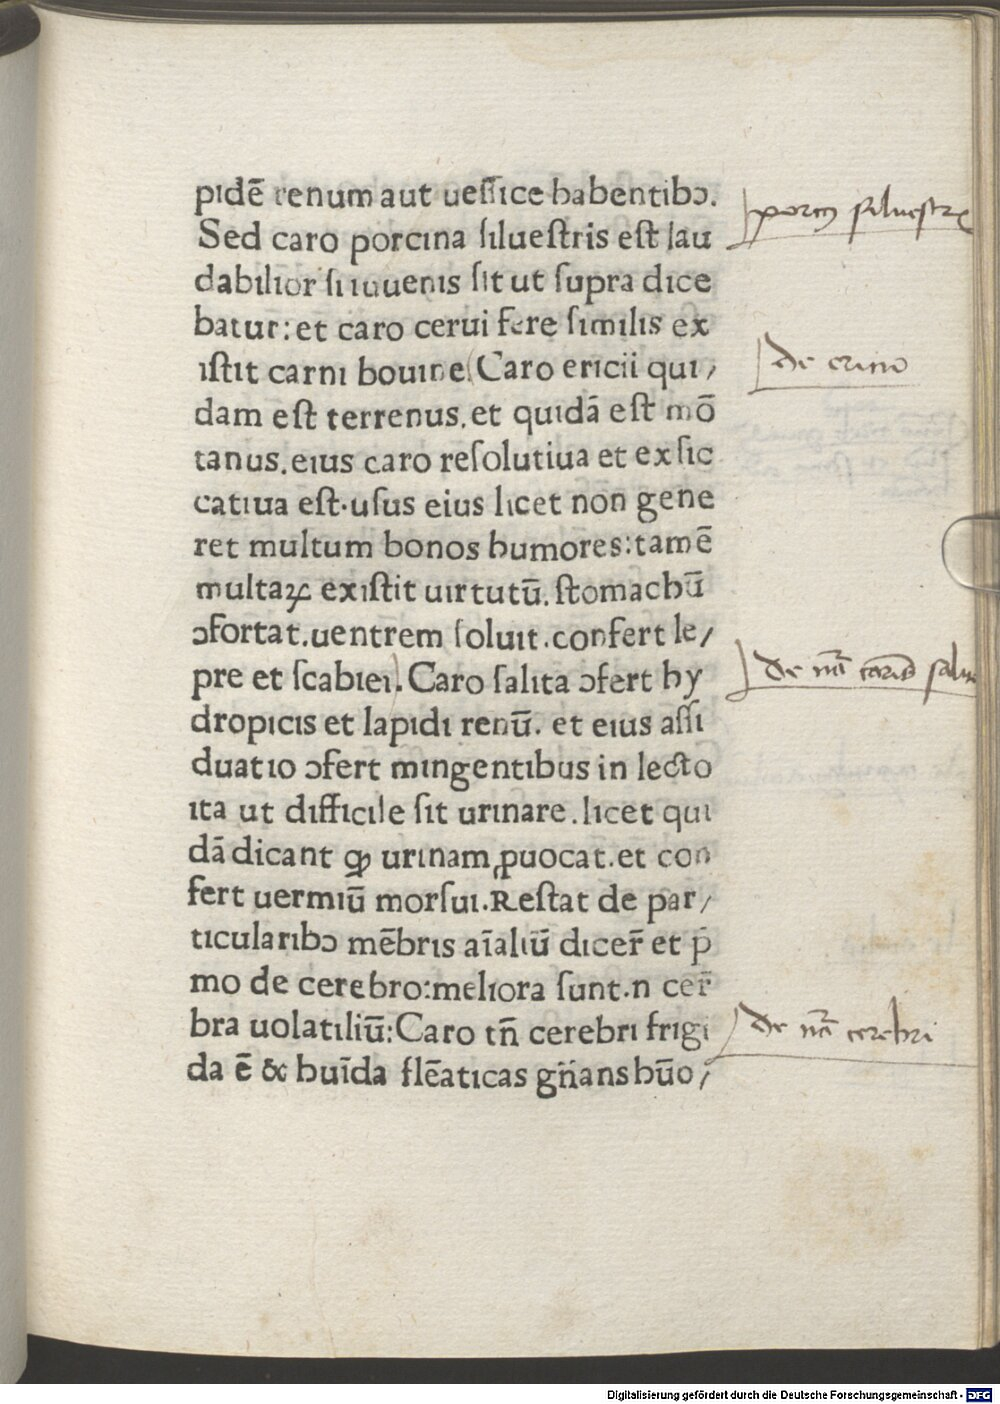 pidē renum aut ueſſice habentibꝰ.
Sed caro porcina ſilueſtris eſt lau
dabilior ſi iuuenis ſit ut ſupra dice
batur: et caro cerui fere ſimilis ex
iſtit carni bouine( Caro ericii qui,
dam eſt terrenus. et quidā eſt mō
tanus. eius caro reſolutiua et exſic
catiua eſt. uſus eius licet non gene
ret multum bonos humores: tamē
multaꝝ exiſtit uirtutū. ſtomachū
ↄfortat. uentrem ſoluit. confert le,
pre et ſcabiei). Caro ſalita ↄfert hy
dropicis et lapidi renū. et eius aſſi
duatio ↄfert mingentibus in lecto
ita ut difficile ſit urinare. licet qui
dā dicant ꝙ urinam ꝓuocat. et con
fert uermiū morſui. Reſtat de par,
ticularibꝰ mēbris aīaliū dicer̄ et p̄
mo de cerebro: meliora ſunt. n cer̄
bra uolatiliū: Caro tn̄ cerebri frigi
da ē & huīda flēaticas gn̄ans hūo,
porcus ſilueſtris
de ericio
de nā carnis
de nā cerebri
Digitalisierung gefördert durch die Deutsche Forschungsgemeinschaft - DFG